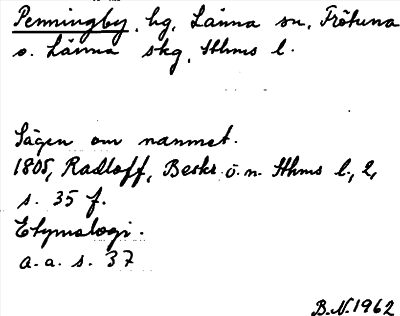 Penningby, hg, Länna sn, Frötuna
o. Länna skg, Sthms l.
Sägen om namnet.
1805, Radloff, Beskr ö. n. Sthms l., 2,
s. 35 f.
Etymologi.
a. a. s. 37
B.N. 1962